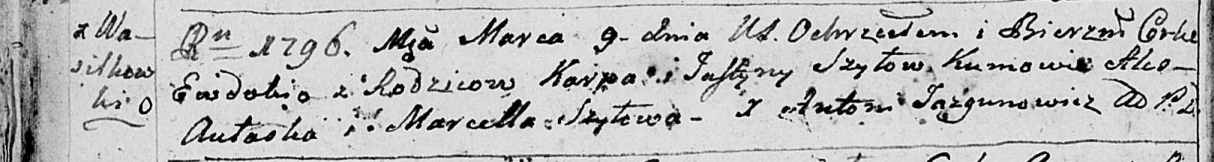 z Wa-
silkow
ki
Ru 1796. Mca Marca 9. dnia Ut. Ochrzciłem i Bierzm Corke
Ewdokio z Rodzicow Karpa i Justyny Szytow Kumowie
Autaska i Marcella Szytowa - X Antoni Jazgunowicz AD P.D.